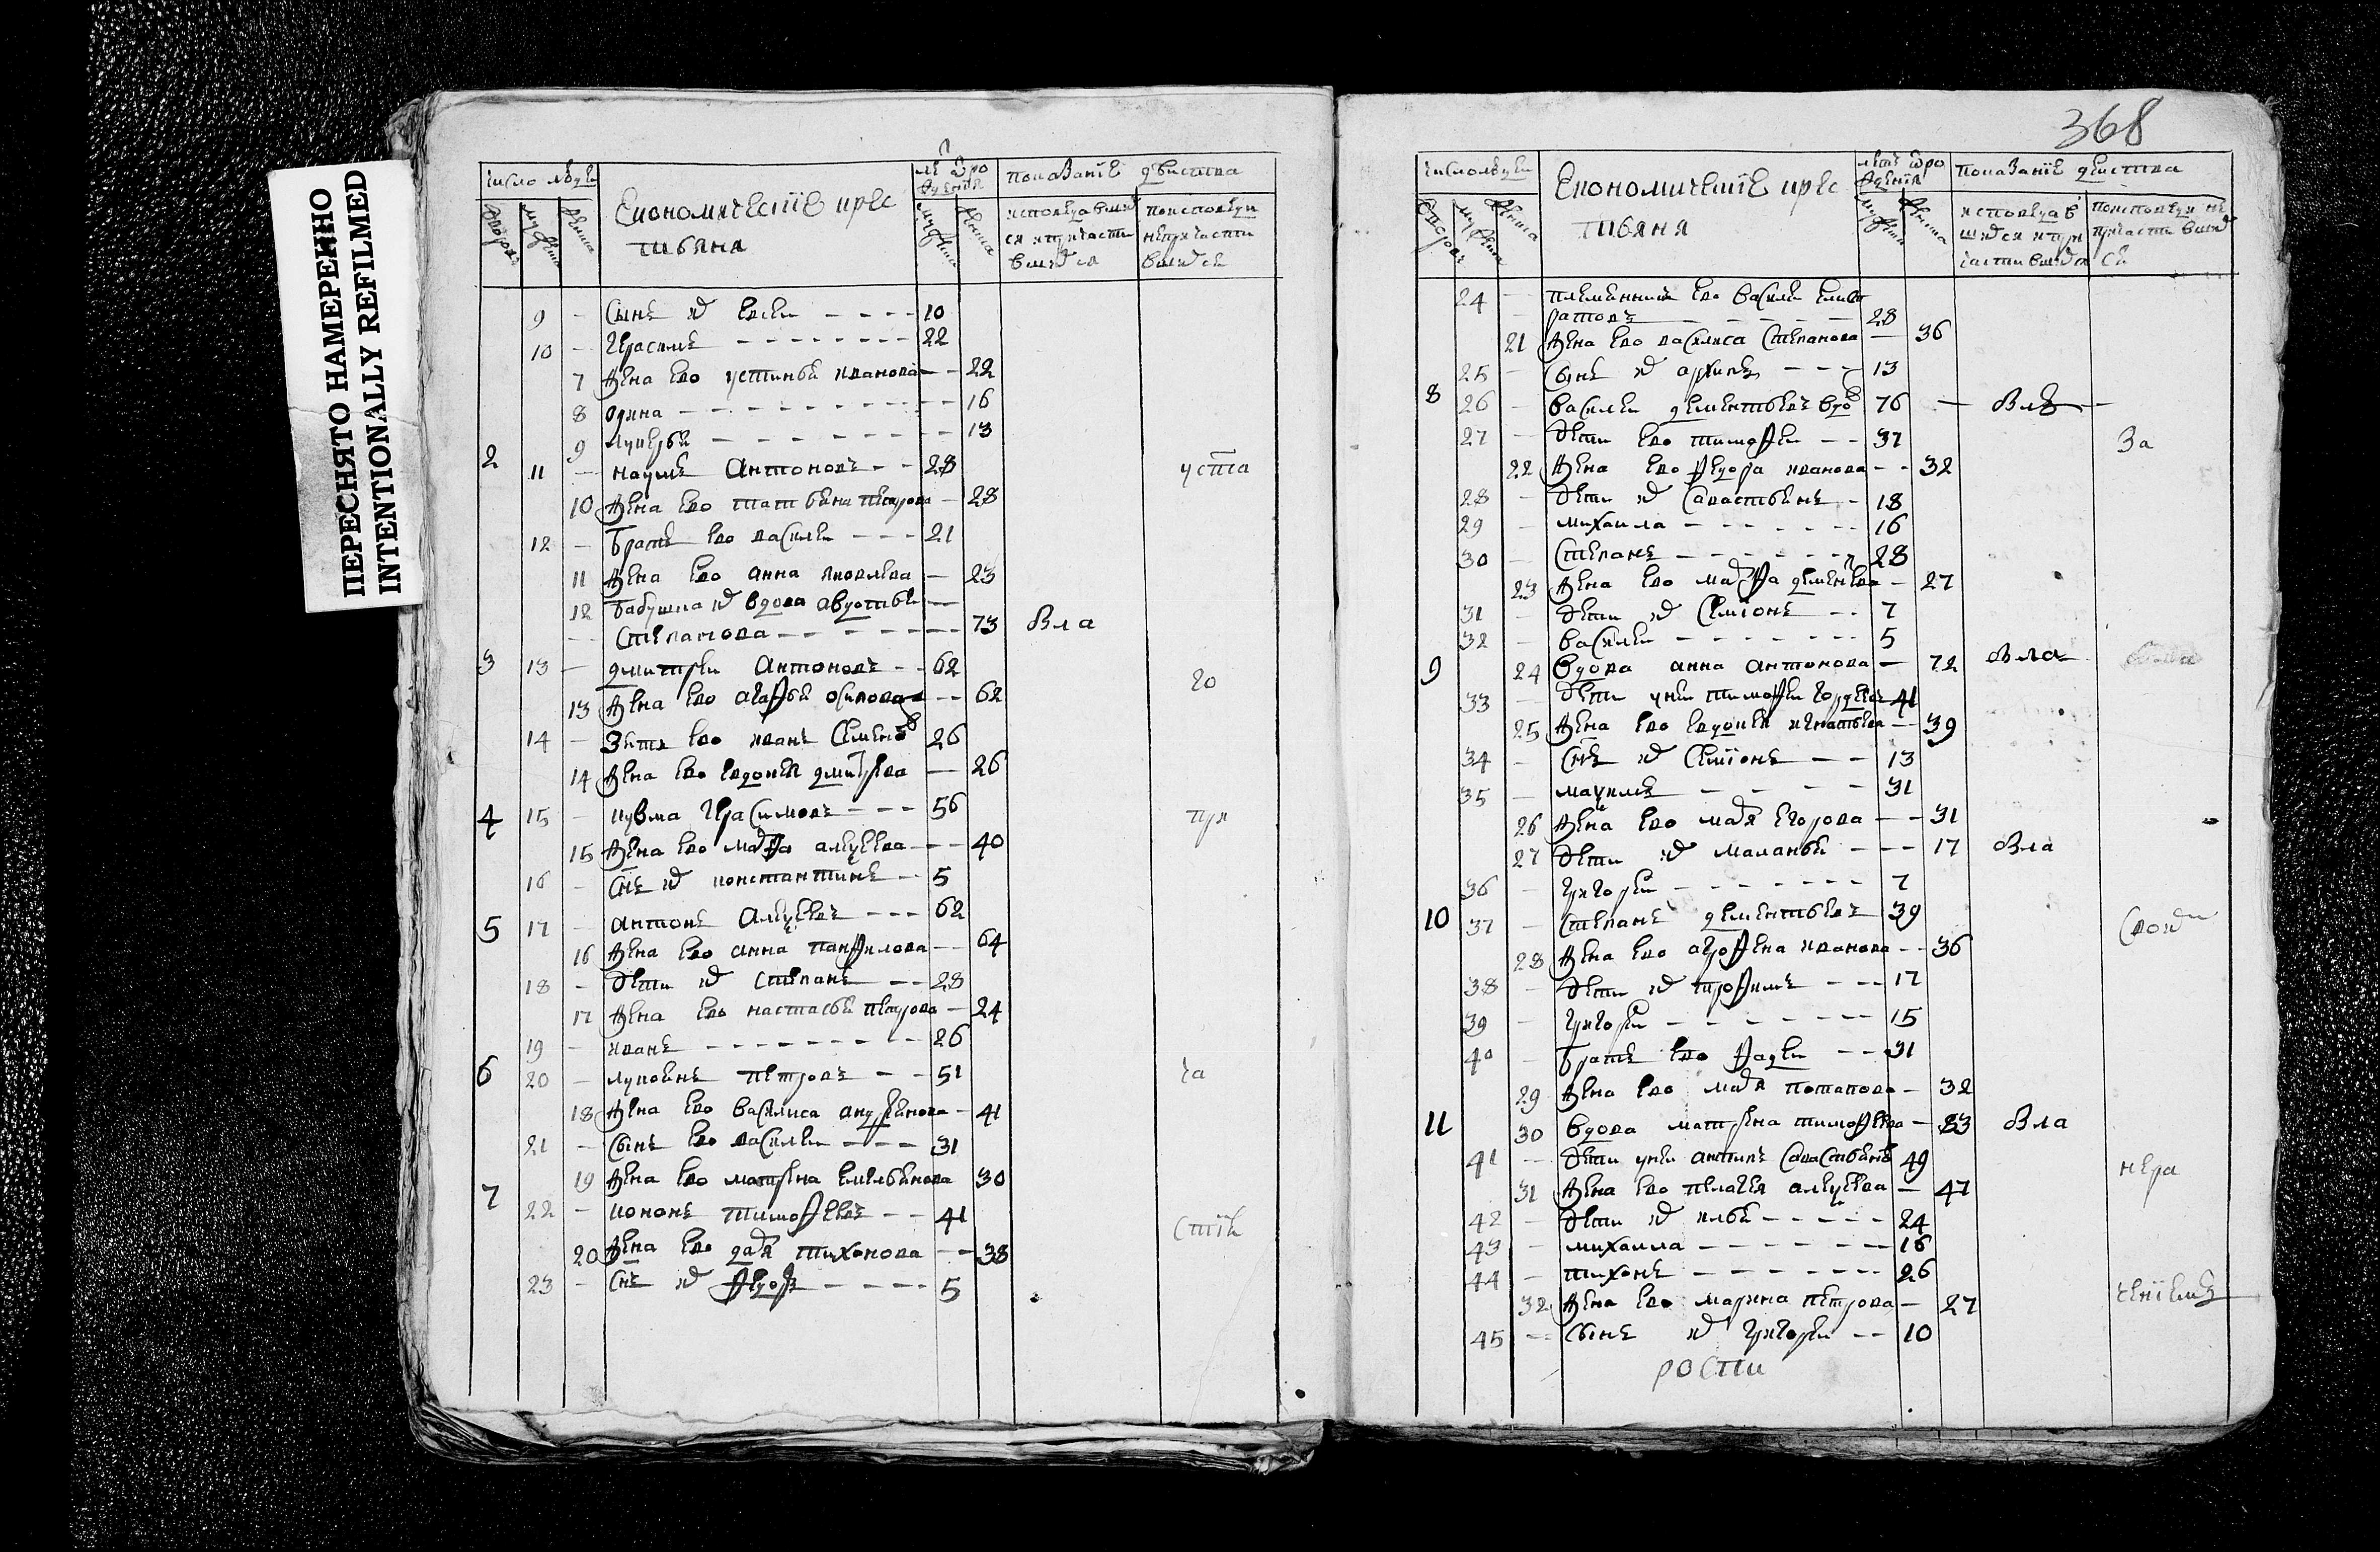 ПЕРЕСНЯТО НАМЕРЕННО
INTENTIONALLY REFILMED
число людеи
лѣ ѿ ро
жденiя
показанiе двиства
Економическiе крес
тьяня
дворовъ мужеска женска
мужеска женска
исповедавших
ся и причасти
вшихся
по исповеди
не причасти
вшихся
9 - сынъ их евсеи - - - - 10
10 - герасимъ - - - - - - - - 22
7 жена ево устинья иванова - - 22
8 - - - - - - - - - 16
9 лукерья - - - - - - - - 13
2 11 - наумъ антоновъ - - 28 уста
10 жена ево татьяна петрова - 28
12 - братъ ево василеи - - - 21
11 жена ево анна яковлева - 23
12 бабушка их вдова авдотья -
- - степанова - - - - - - - 73 вла
3 13 - дмитреи антоновъ - - 62 го
13 жена ево агафья осипова - - 62
14 - зять ево иванъ семенов 26
14 жена ево евдокея дмитрева - 26
4 15 - кузма герасимовъ - - - 56 при
15 жена ево марфа алеѯеева - - - 40
16 - снъ их константинъ - - 5
5 17 - антонъ алеѯеевъ - - - 62
16 жена ево анна панфилова - - 64
18 - дети их степанъ - - 28
17 жена ево настасья петрова - 24
19 - иванъ - - - - - - - - - 26
6 20 - лукоянъ петровъ - - 51 ча
18 жена ево василиса андреянова - 41
21 - сынъ ево василеи - - - 31
19 жена ево матрена емельянова 30
7 22 - кононъ тимофеевъ - - 41 стiи
20 жена ево даря тихонова - - 38
23 - снъ их федоръ - - - - - 5
368
число людеи
летъ ѿ ро
жденiя
показанiе деиства
Економическiе крес
тьяня
мужеска женска
мужеска женска
исповедав
шихся и при
частившихся
по исповеди не
причастивших
ся
24 - племянникъ ево василеи елист
ратовъ - - - - - - - 28
21 жена ево василиса степанова - 36
25 - сынъ их архипъ - - - 13
8 26 - василеи дементьевъ вдов 76 - вла -
27 - дети ево тимофеи - - 37 за
22 жена ево федора иванова - - 32
28 - дети их савастьянъ - 18
29 - михаила - - - - - - - 16
30 - степанъ - - - - - - 28
23 жена ево марфа дементева - 27
31 - дети их семiонъ - - 7
32 - василеи - - - - - - - 5
9 24 вдова анна антонова - 72 вла
33 - дети у неи тимофеи гордеевъ 41
25 жена ево евдокея игнатьева - 39
34 - снъ их семiонъ - - 13
35 - маѯимъ - - - - - 31
26 жена ево маря егорова - - 31
27 дети их маланья - - - 17 вла
36 - григореи - - - - - - - 7
10 37 - степанъ дементьевъ 39 своим
28 жена ево агрофена иванова - - 36
38 - дети их трофимъ - - - 17
39 - григореи - - - - - - - 15
40 - братъ ево фадеи - - 31
29 жена ево маря потапова - 32
11 30 вдова матрена тимофеева - 83 вла
41 - дети у неи антипъ савастьянов 49 нера
31 жена ево пелагея алеѯеева - 47
42 - дети их илья - - - - - 24
43 - михаила - - - - - - - 16
44 - тихонъ - - - - - - - 26
32 жена ево марина петрова - 27 ченiемъ
45 - сынъ их григореи - - 10
рости